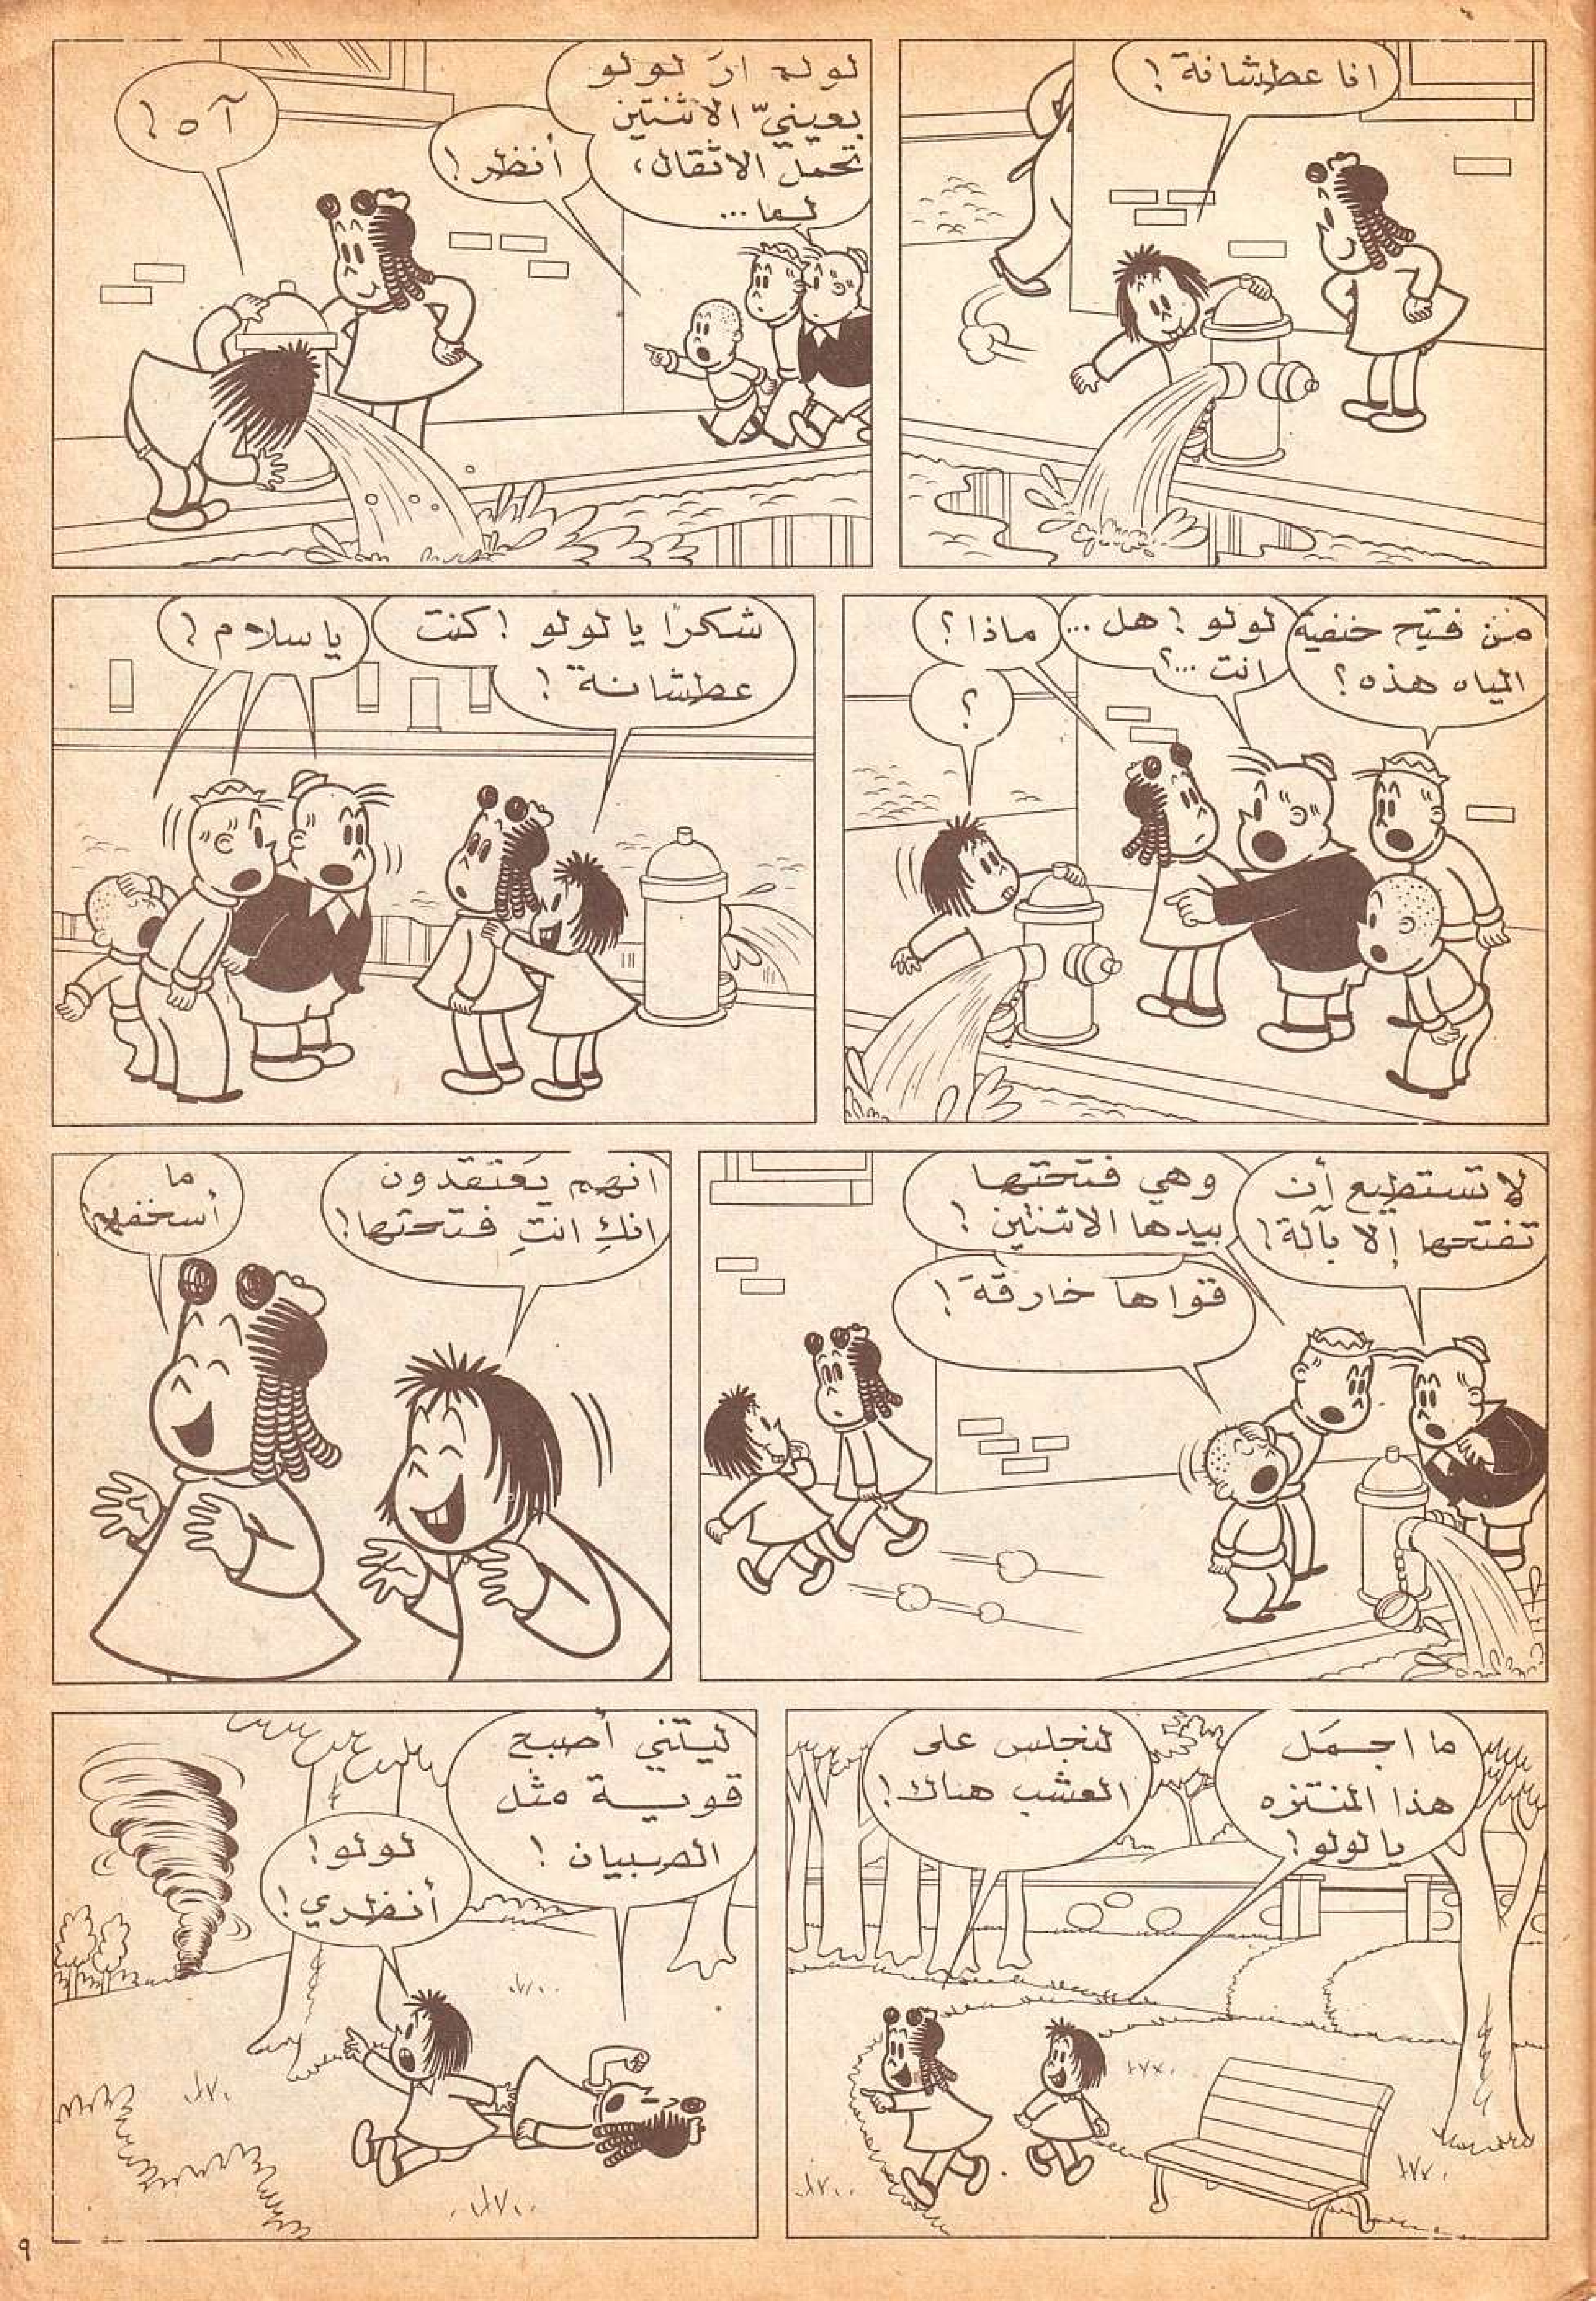 انا عطشانة!
لو لم ارَ لولو
بعينيّ الاثنتين
تحمل الاثقال،
لما...
أنظر!
آه!
من فتح حنفية
المياه هذه؟
لولو! هل...
انت...؟
ماذا؟
؟
شكرًا يا لولو! كنت
عطشانة!
يا سلام!
لا تستطيع أن
تفتحها إلا بآلة!
وهي فتحتها
بيدها الاثنتين!
قواها خارقة!
انهم يَعتقدون
انكِ انتِ فتحتها!
ما
أسخفهم
ما اجمَل
هذا المنتزه
يا لولو!
لنجلس على
العشب هناك!
ليتني أصبح
قوية مثل
الصبيان!
لولو!
أنظري!
٩